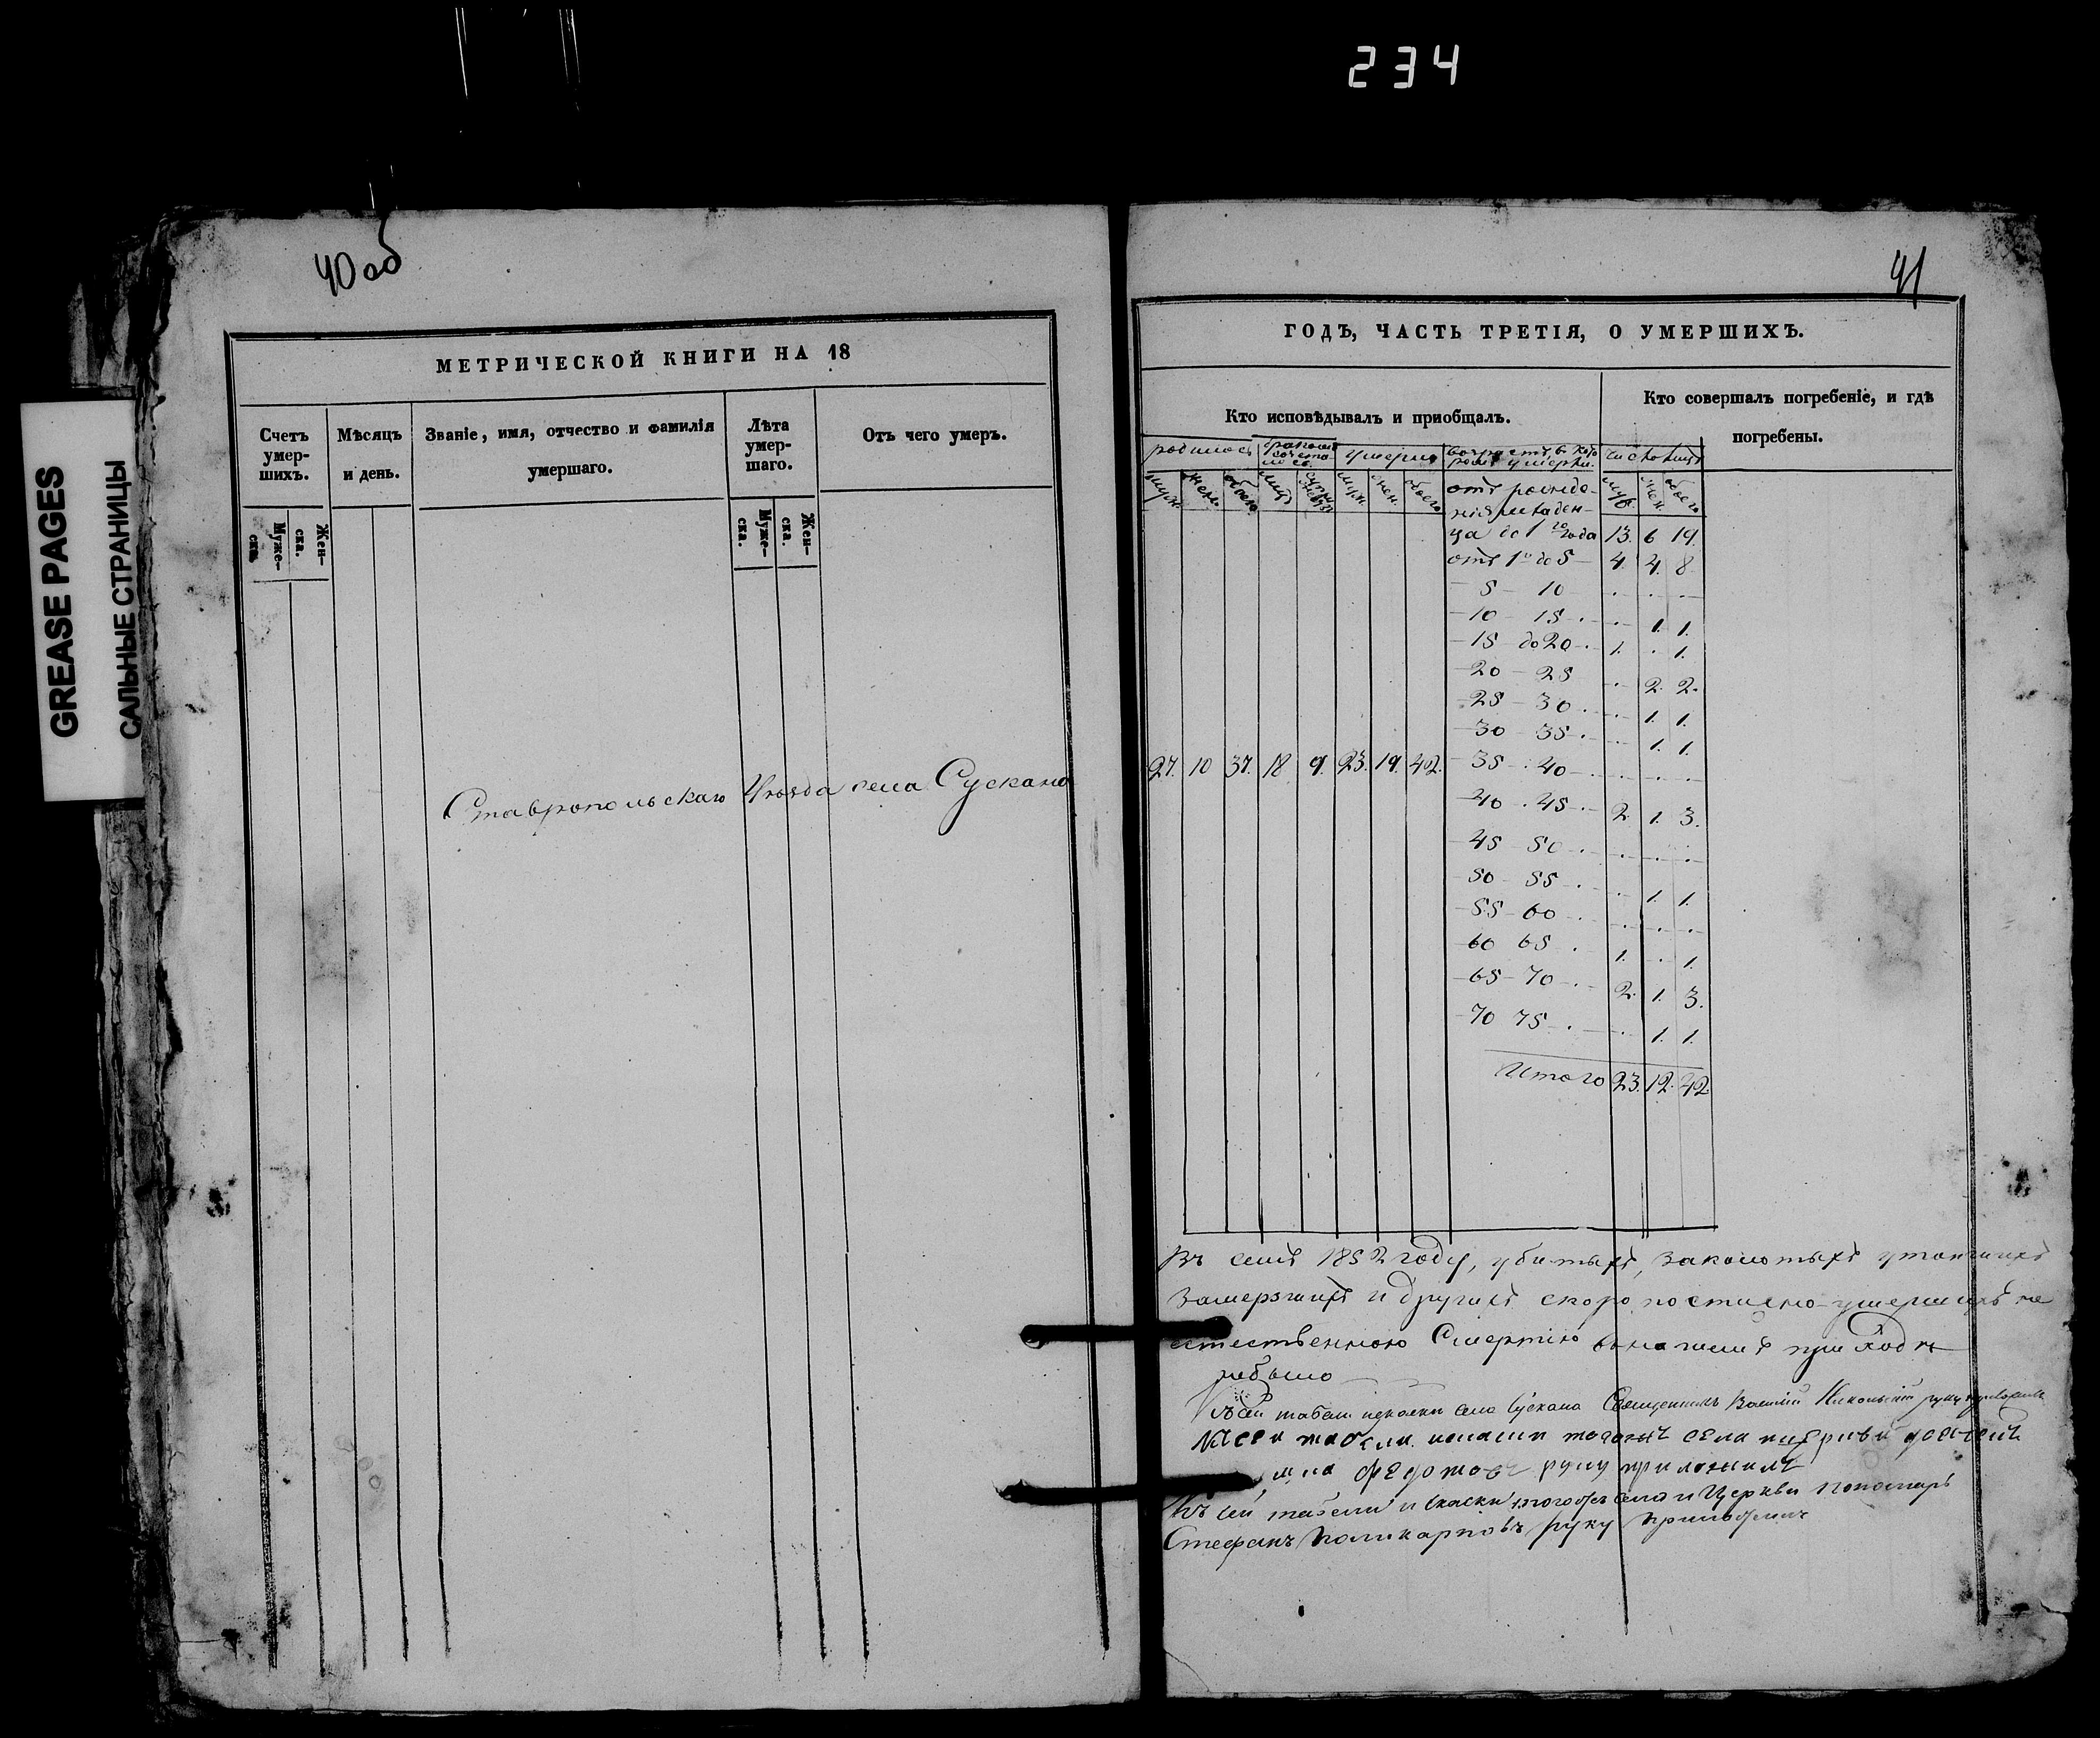 234
GREASE PAGES
САЛЬНЫЕ СТРАНИЦЫ
40 об
МЕТРИЧЕСКОЙ КНИГИ НА 18
Счетъ умер-шихъ.
Мѣсяцъ и день.
Званіе, имя, отчество и фамилія умершаго.
Лѣта умер-шаго.
Отъ чего умеръ.
Муже-ска.
Жен-ска.
Муже-ска.
Жен-ска.
Ставропольскаго Уѣзда села Сускана
41
ГОДЪ, ЧАСТЬ ТРЕТІЯ, О УМЕРШИХЪ.
Кто исповѣдывалъ и приобщалъ.
Кто совершалъ погребеніе, и гдѣ погребены.
родилось
умерло
муж. жен. обоего
муж. жен. обоего
муж. жен. обоего
отъ рожде-
нія младен-
ца до 1го года 13. 6 19.
отъ 1го до 5 4. 4. 8.
5 - 10
10 - 15 . 1. 1.
15 до 20 1. . 1.
20 - 25 2. 2.
25 - 30 1. 1.
30 - 35 1. 1.
27. 10 37. 18 9. 23. 19. 42.
35 . 40
40 . 45 2. 1. 3.
45 50
50 55 1. 1.
55 60
60 65 1. . 1.
65 - 70 2. 1. 3.
70 75 1. 1.
Итого 23. 19. 42.
Въ семъ 1852 году, убитыхъ, заколотыхъ утопшихъ
замерзшихъ и другихъ скоропостижно умершихъ не
естественною Смертію въ нашемъ приходѣ
небыло
Къ сей табели села Сускана Священникъ Василій Никольскій руку приложилъ
Ксеи табели тогожъ села
Федотовъ руку приложилъ
Къ сей табели и сказки тогожъ села и Церкви пономарь
Стефанъ Поликарповъ руку приложилъ